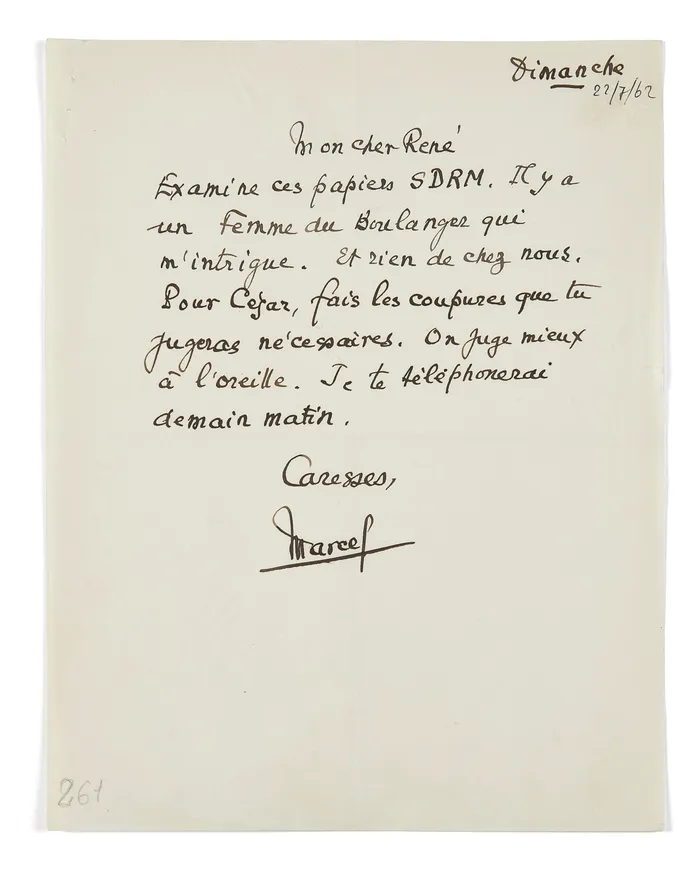 Dimanche
22/7/62
Mon cher René
Examine ces papiers SDRM. Il y a
un Femme du Boulanger qui
m'intrigue. Et rien de chez nous.
Pour César, fais les coupures que tu
jugeras nécessaires. On juge mieux
à l'oreille. Je te téléphonerai
demain matin.
Caresses,
Marcel
261